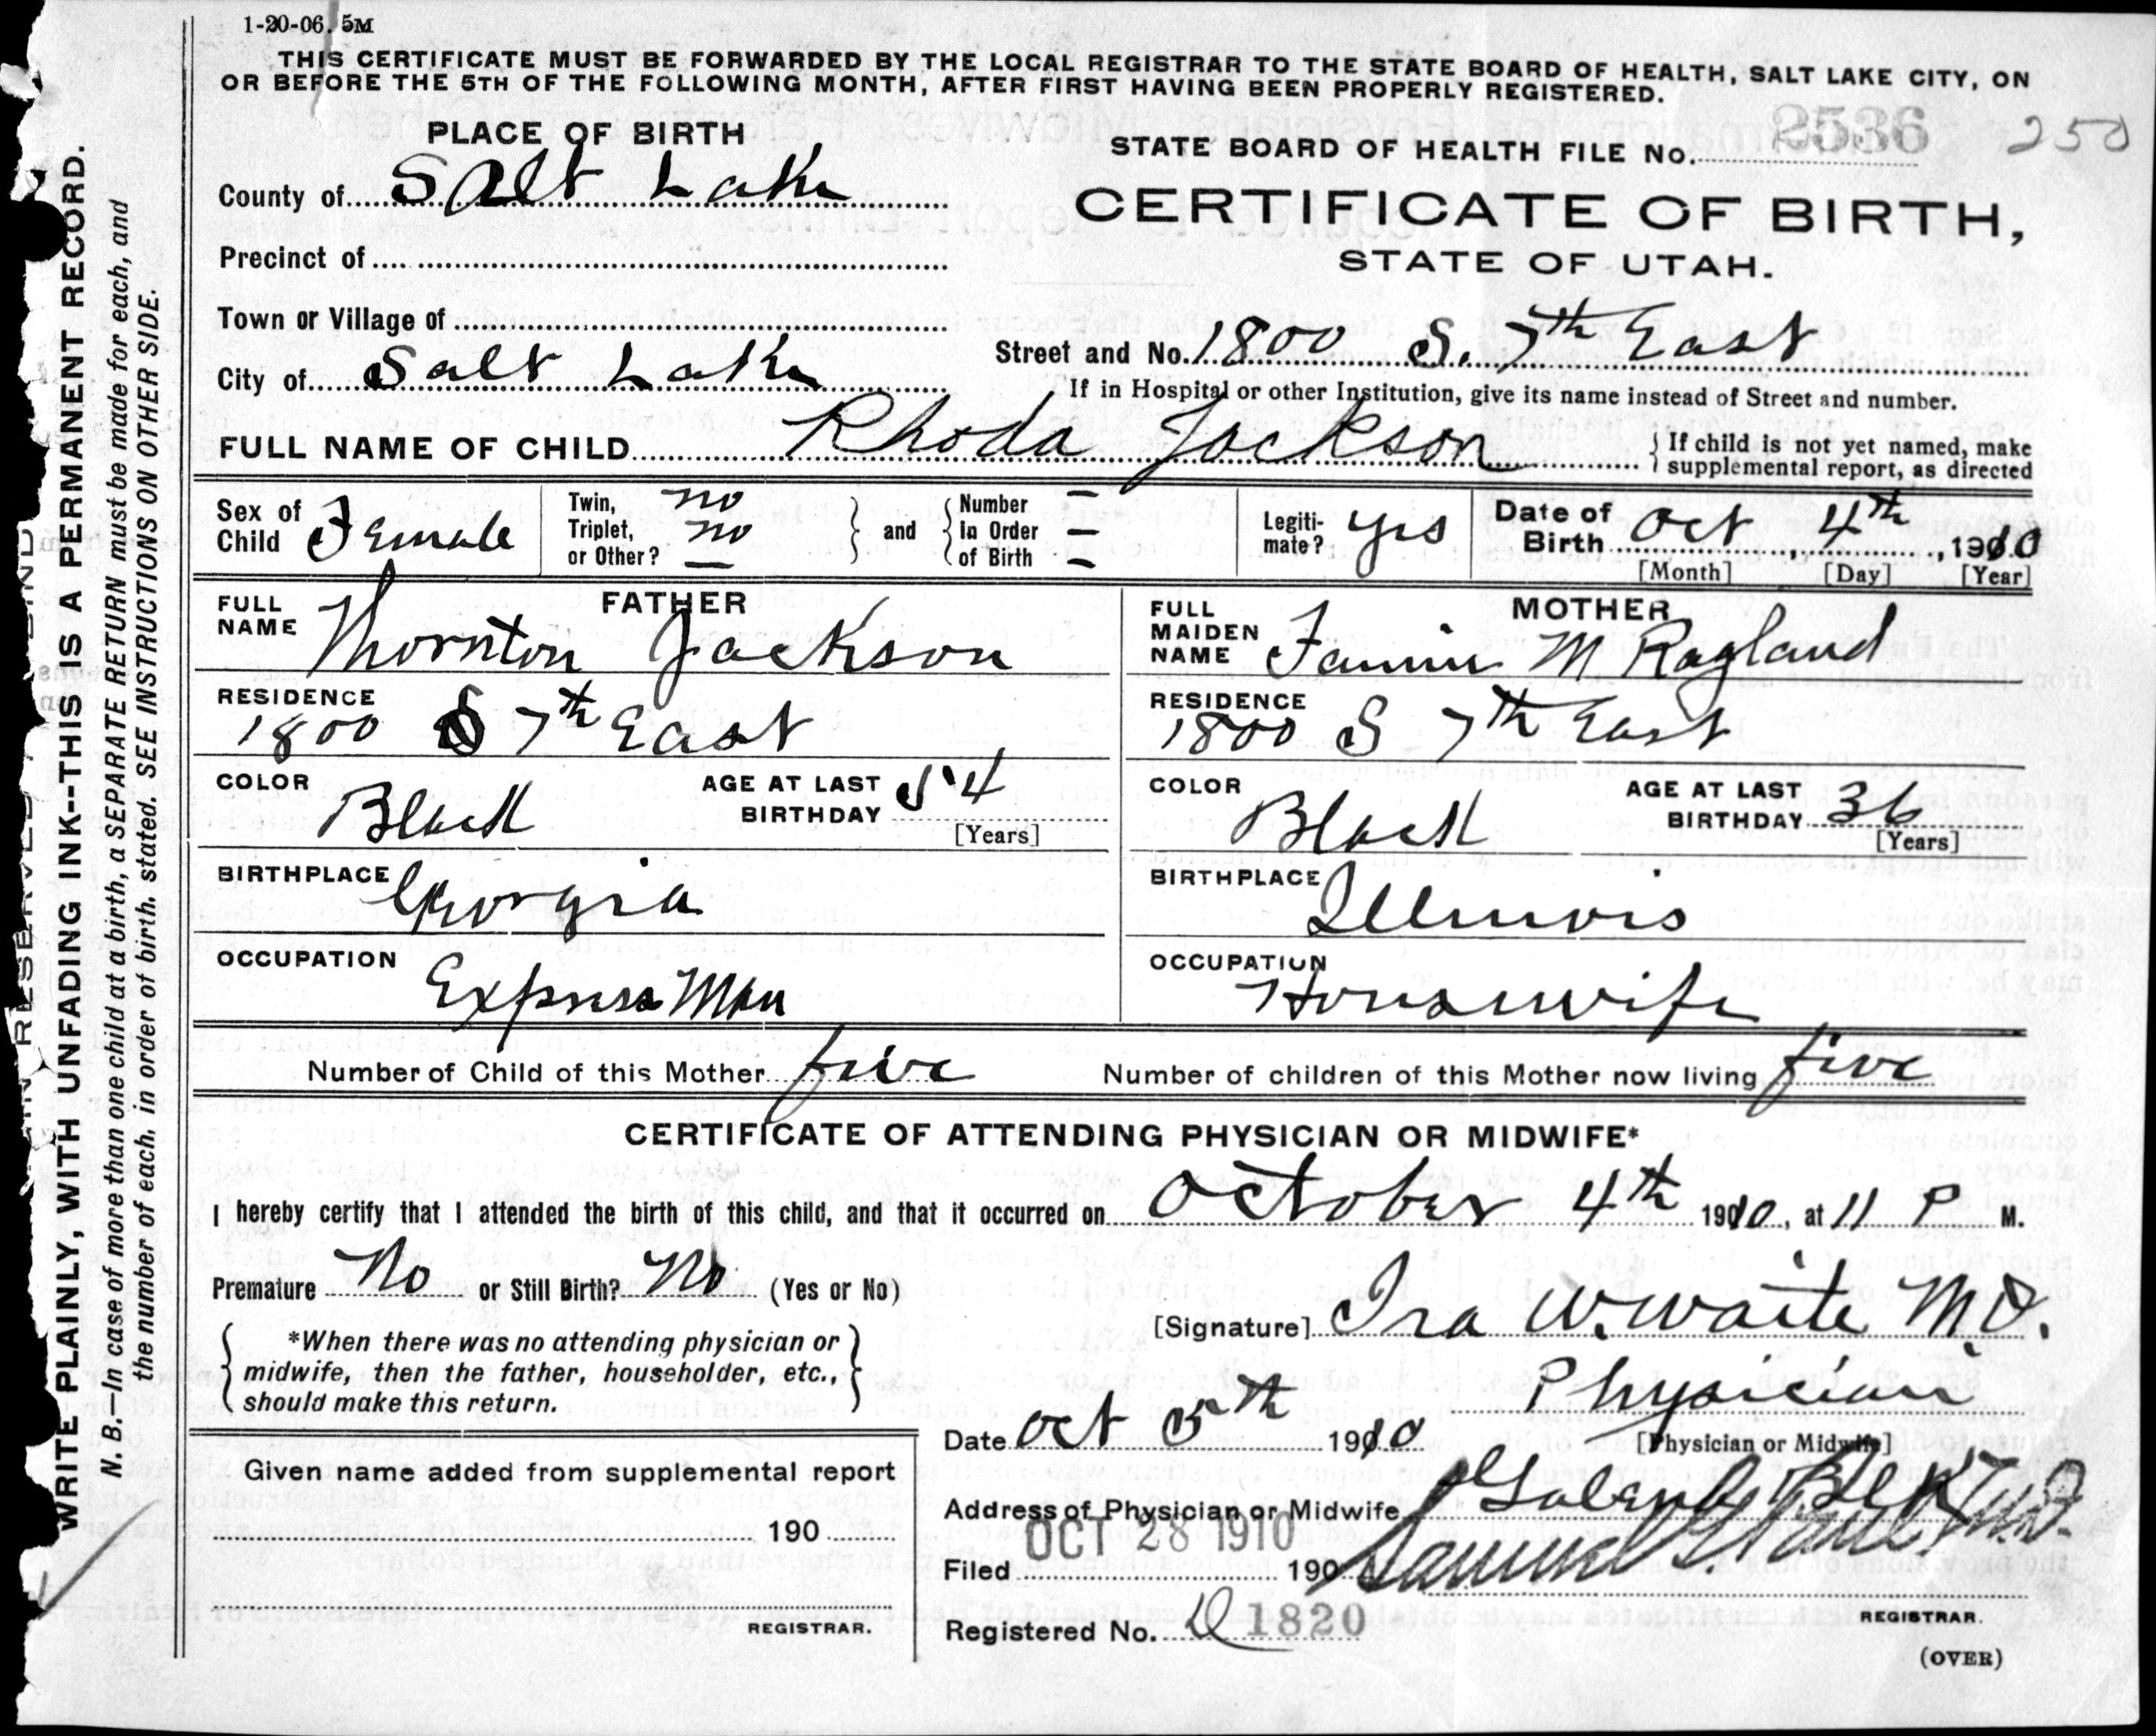 1-20-06. 5M
THIS CERTIFICATE MUST BE FORWARDED BY THE LOCAL REGISTRAR TO THE STATE BOARD OF HEALTH, SALT LAKE CITY, ON
OR BEFORE THE 5TH OF THE FOLLOWING MONTH, AFTER FIRST HAVING BEEN PROPERLY REGISTERED.
PLACE OF BIRTH
STATE BOARD OF HEALTH FILE No. 2536 250
County of Salt Lake
CERTIFICATE OF BIRTH,
STATE OF UTAH.
Precinct of
Town or Village of
Street and No. 1800 S. 7th East
City of Salt Lake
If in Hospital or other Institution, give its name instead of Street and number.
FULL NAME OF CHILD Rhoda Jackson
If child is not yet named, make
supplemental report, as directed
Sex of Child Female
Twin, no
Triplet, no
or Other? —
and
Number –
In Order –
of Birth –
Legiti-
mate? yes
Date of
Birth Oct, 4th, 1910
[Month] [Day] [Year]
FATHER
FULL NAME Thornton Jackson
RESIDENCE
1800 S 7th East
COLOR Black
AGE AT LAST BIRTHDAY 54
[Years]
BIRTHPLACE Georgia
OCCUPATION Express Man
MOTHER
FULL MAIDEN NAME Fannie M Ragland
RESIDENCE
1800 S 7th East
COLOR Black
AGE AT LAST BIRTHDAY 36
[Years]
BIRTHPLACE Illinois
OCCUPATION Housewife
Number of Child of this Mother five
Number of children of this Mother now living five
CERTIFICATE OF ATTENDING PHYSICIAN OR MIDWIFE*
I hereby certify that I attended the birth of this child, and that it occurred on October 4th 1910, at 11 P M.
Premature No or Still Birth? No (Yes or No)
[Signature] Ira W. Waite M.D.
*When there was no attending physician or
midwife, then the father, householder, etc.,
should make this return.
Physician
[Physician or Midwife]
Date Oct 5th 1910
Given name added from supplemental report
190
REGISTRAR.
Address of Physician or Midwife
OCT 28 1910
Filed 190
Samuel G. Paul M.D.
REGISTRAR.
Registered No. 1820
(OVER)
WRITE PLAINLY, WITH UNFADING INK--THIS IS A PERMANENT RECORD.
N. B.—In case of more than one child at a birth, a SEPARATE RETURN must be made for each, and
the number of each, in order of birth, stated. SEE INSTRUCTIONS ON OTHER SIDE.